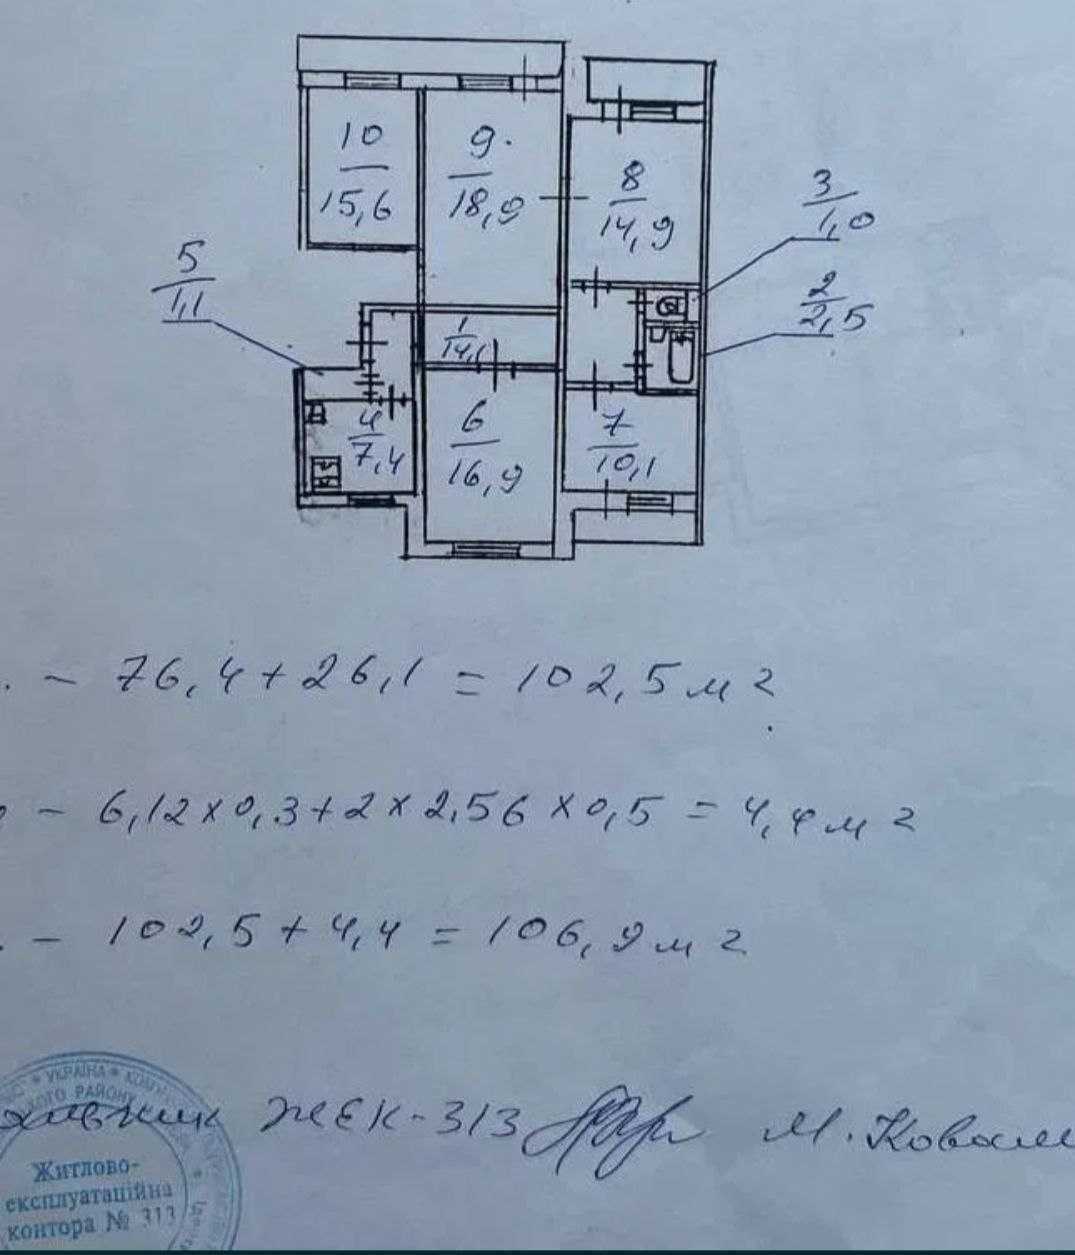 10
15,6
9.
18,9
8
14,9
3
1,0
5
1,1
2
2,5
1
14,1
4
7,4
6
16,9
7
10,1
. – 76,4 + 26,1 = 102,5 м2
– 6,12 x 0,3 + 2 x 2.56 x 0,5 = 4,4 м2
. – 102,5 + 4,4 = 106,9 м2
ЖЕК-313 М. Ковал
* УКРАЇНА *
КОГО РАЙОНУ
Житлово-
експлуатаційна
контора № 313